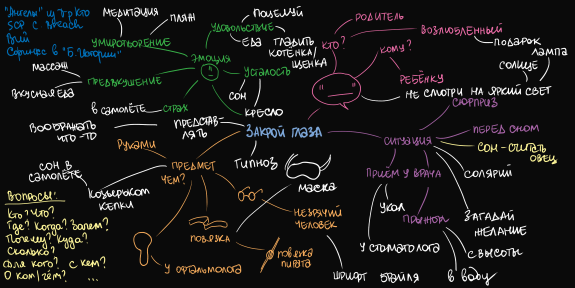 "Ангелы" из Др Кто
SCP с Breach
Вий
Сфинкс в "Б. Истории"
МЕДИТАЦИЯ
ПЛЯЖ
УМИРОТВОРЕНИЕ
МАССАЖ
ПРЕДВКУШЕНИЕ
ВКУСНАЯ ЕДА
В САМОЛЁТЕ
СТРАХ
ЭМОЦИЯ
УДОВОЛЬСТВИЕ
ПОЦЕЛУЙ
ЕДА
ГЛАДИТЬ
КОТЕНКА/
ЩЕНКА
УСТАЛОСТЬ
СОН
КРЕСЛО
ВООБРАЖАТЬ
ЧТО-ТО
ПРЕДСТАВ-
ЛЯТЬ
ЗАКРОЙ ГЛАЗА
ГИПНОЗ
КТО?
РОДИТЕЛЬ
ВОЗЛЮБЛЕННЫЙ
КОМУ?
РЕБЁНКУ
ПОДАРОК
ЛАМПА
СОЛНЦЕ
НЕ СМОТРИ НА ЯРКИЙ СВЕТ
СЮРПРИЗ
СИТУАЦИЯ
ПЕРЕД СНОМ
СОН-СЧИТАТЬ
ОВЕЦ
СОЛЯРИЙ
ЗАГАДАЙ
ЖЕЛАНИЕ
ПРИЁМ У ВРАЧА
УКОЛ
У СТОМАТОЛОГА
ПРЫЖОК
С ВЫСОТЫ
В ВОДУ
РУКАМИ
СОН В
САМОЛЁТЕ
ПРЕДМЕТ
ЧЕМ?
КОЗЫРЬКОМ
КЕПКИ
МАСКА
НЕЗРЯЧИЙ
ЧЕЛОВЕК
ШРИФТ БРАЙЛЯ
ПОВЯЗКА
ПОВЯЗКА
ПИРАТА
У ОФТАЛЬМОЛОГА
ВОПРОСЫ:
Кто? Что?
Где? Когда? Зачем?
Почему? Куда?
Сколько?
Для кого? С кем?
О ком/чём? ...